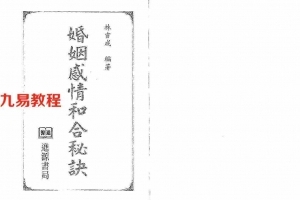 林吉成 編著
婚姻感情和合秘訣
進源書局
九易教程
www.93yiz.com